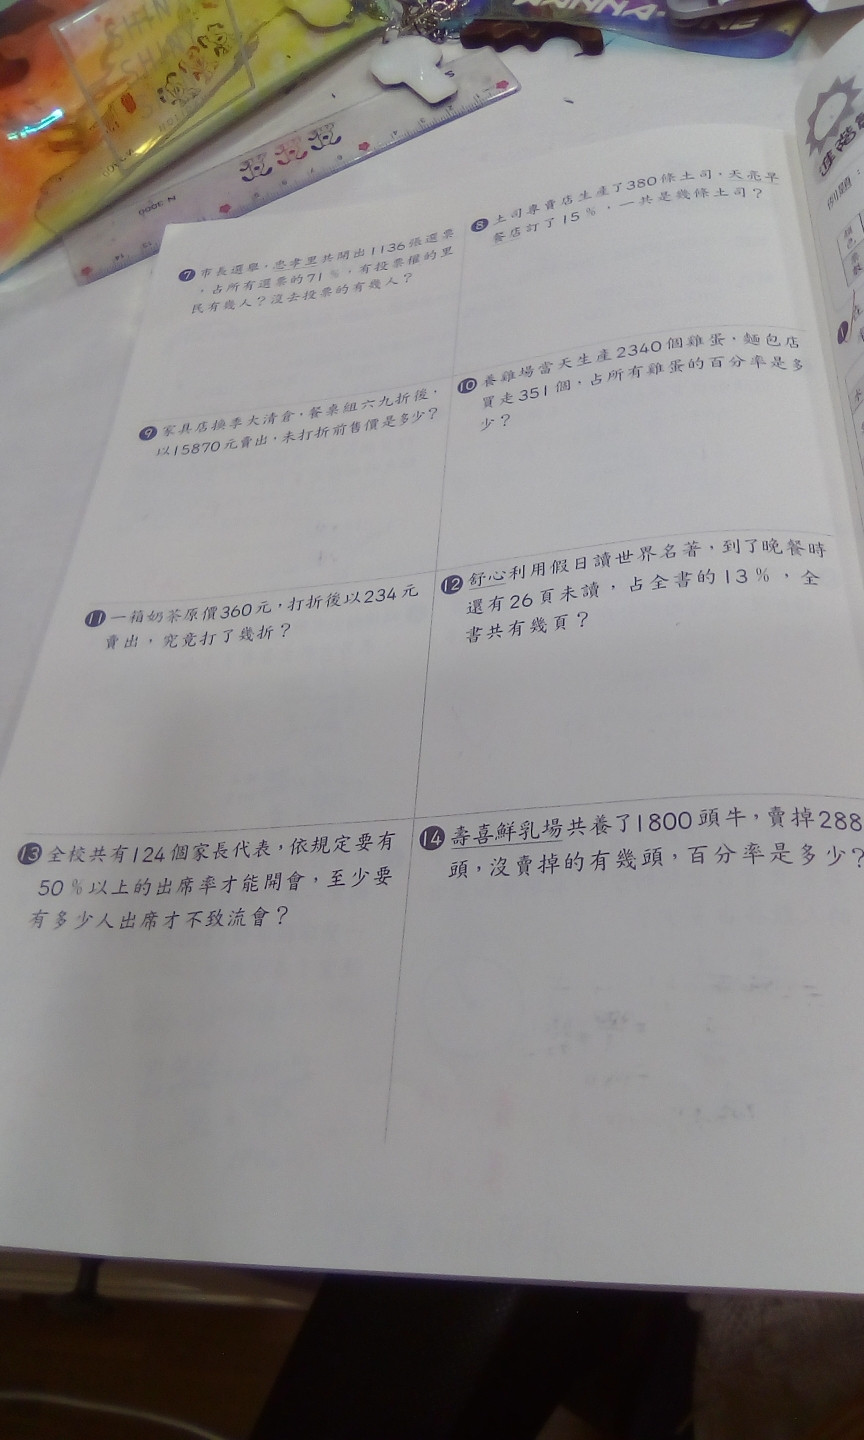 ❼ 市長選舉，忠孝里共開出1136張選票
，占所有選票的71％，有投票權的里
民有幾人？沒去投票的有幾人？
❽ 土司專賣店生產了380條土司，天亮早
餐店訂了15％，一共是幾條土司？
❾ 家具店換季大清倉，餐桌組六九折後，
以15870元賣出，未打折前售價是多少？
❿ 養雞場當天生產2340個雞蛋，麵包店
買走351個，占所有雞蛋的百分率是多
少？
⓫ 一箱奶茶原價360元，打折後以234元
賣出，究竟打了幾折？
⓬ 舒心利用假日讀世界名著，到了晚餐時
還有26頁未讀，占全書的13％，全
書共有幾頁？
⓭ 全校共有124個家長代表，依規定要有
50％以上的出席率才能開會，至少要
有多少人出席才不致流會？
⓮ 壽喜鮮乳場共養了1800頭牛，賣掉288
頭，沒賣掉的有幾頭，百分率是多少？